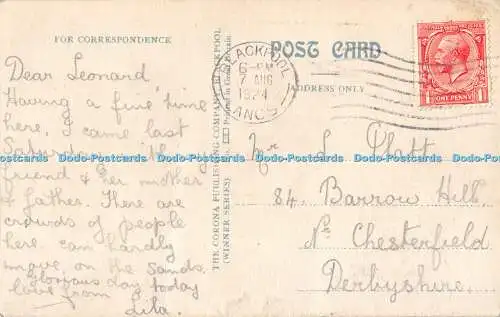 FOR CORRESPONDENCE
Dear Leonard
Having a fine time
here. I came last
Saturday with my
friend & her mother
& father. There are
crowds of people
here can hardly
move on the Sands.
Glorious day today
love from
Lila.
THE CORONA PUBLISHING COMPANY, BLACKPOOL
(WINNER SERIES)
Printed in Great Britain.
POST CARD
ADDRESS ONLY
BLACKPOOL
6-PM
7 AUG
1924
LANCS
ONE PENNY
Mr L Platt
84. Barrow Hill.
Nr Chesterfield
Derbyshire.
Dodo-Postcards Dodo-Postcards Dodo-Postcards Dodo-Postcards Dodo-Postcards